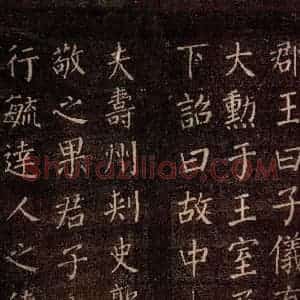 郡王曰子儀
大勳于王室
下詔曰故中
夫壽州刺史
敬之果君子
行毓達人之
Shufaziliao.com